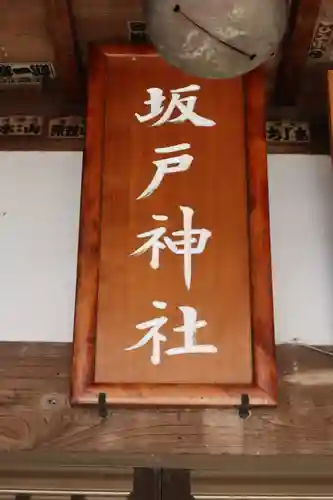 坂戸神社